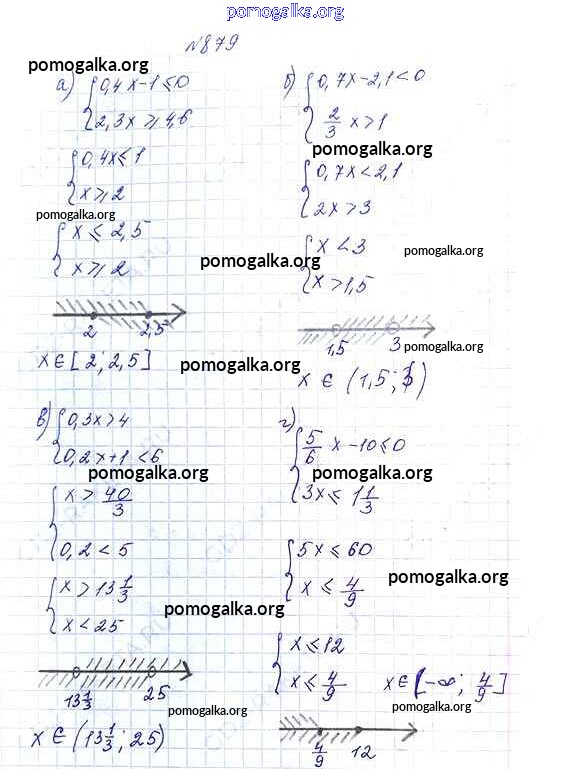 pomogalka.org
№879
pomogalka.org
а) { 0,4x-1≤0
2,3x ≥ 4,6
{ 0,4x≤1
x≥2
pomogalka.org
{ x ≤ 2,5
x≥2
pomogalka.org
2 2,5
x∈[2; 2,5]
pomogalka.org
б) { 0,7x-2,1<0
2/3 x>1
pomogalka.org
{ 0,7x<2,1
2x>3
{ x<3
x>1,5
pomogalka.org
1,5 3
pomogalka.org
x ∈ (1,5; 3)
в) { 0,3x>4
0,2x+1<6
pomogalka.org
{ x > 40/3
0,2<5
{ x>13 1/3
x<25
pomogalka.org
13 1/3 25
x∈(13 1/3; 25)
pomogalka.org
г) { 5/6 x-10≤0
3x≤ 1 1/3
pomogalka.org
{ 5x≤60
x ≤ 4/9
pomogalka.org
{ x≤12
x≤ 4/9
x∈[-∞; 4/9]
pomogalka.org
4/9 12